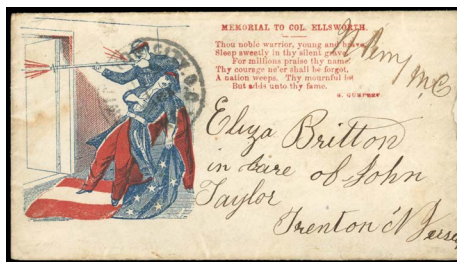 MEMORIAL TO COL. ELLSWORTH.
Thou noble warrior, young and brave,
Sleep sweetly in thy silent grave,
For millions praise thy name.
Thy courage ne'er shall be forgot,
A nation weeps. Thy mournful lot
But adds unto thy fame.
CITY
M C
Eliza Britton
in Care of John
Taylor
Trenton N Jersey